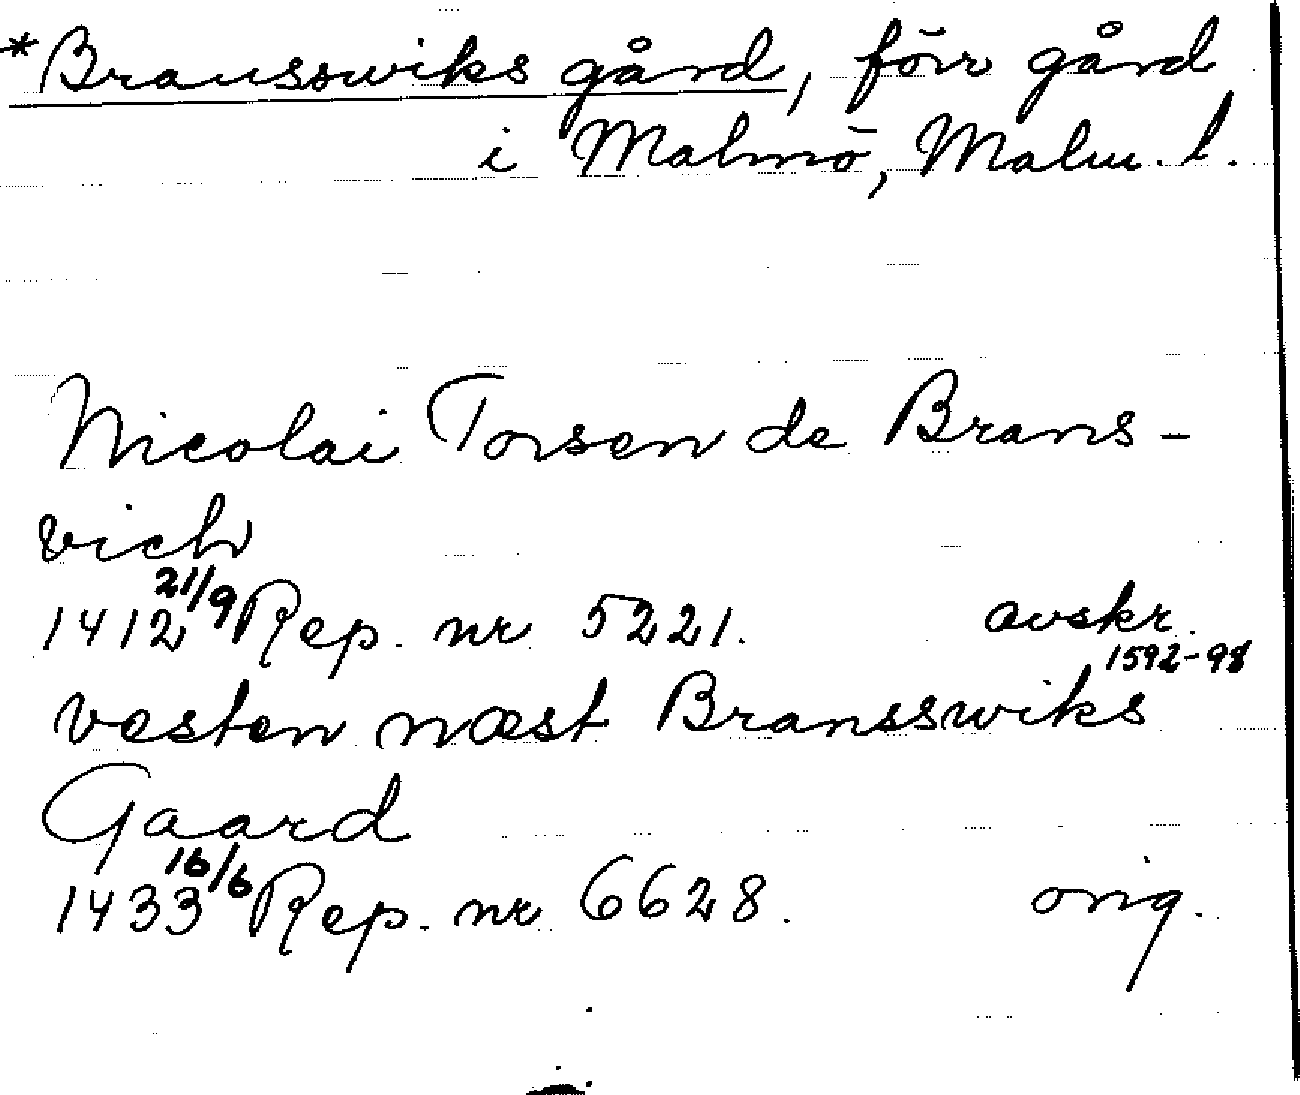 *Bransswiks gård, förr gård
i Malmö, Malm. l.
Nicolai Torsen de Brans-
vich
1412 21/9 Rep. nr 5221. avskr.
1592-98
vesten næst Bransswiks
Gaard
1433 16/6 Rep. nr 6628. orig.